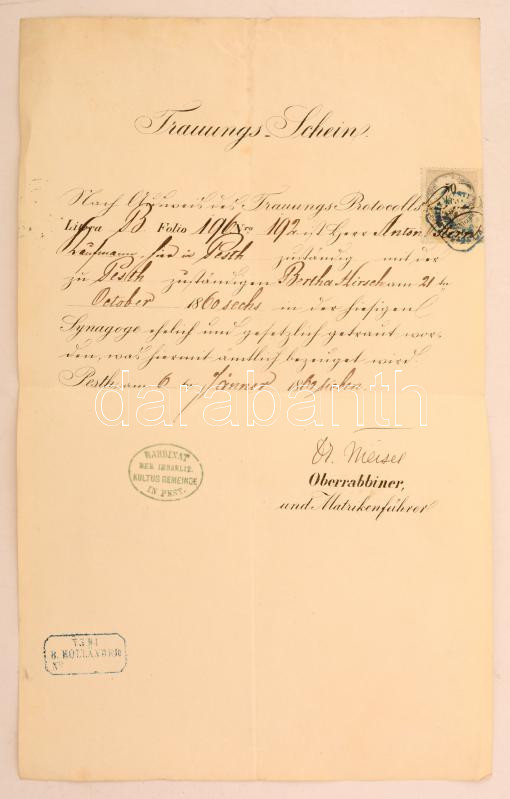 Trauungs-Schein.
50
Nach Ausweis des Trauungs-Protocolls
Littera B Folio 196 Nro 192 ist Herr Anton
Kaufmann, hier in Pesth zuständig mit der
zu Pesth zuständigen Bertha Hirsch am 21 ten
October 1860 sechs in der hiesigen
Synagoge ehelich und gesetzlich getraut wor-
den, was hiermit amtlich bezeuget wird.
Pesth, am 6 ten Jänner 1860 sieben.
darabanth
Dr. Meisel
Oberrabbiner,
und Matrikenführer
RABBINAT
DER ISRAELIT.
KULTUS GEMEINDE
IN PEST.
B. HOLLÄNDER
No